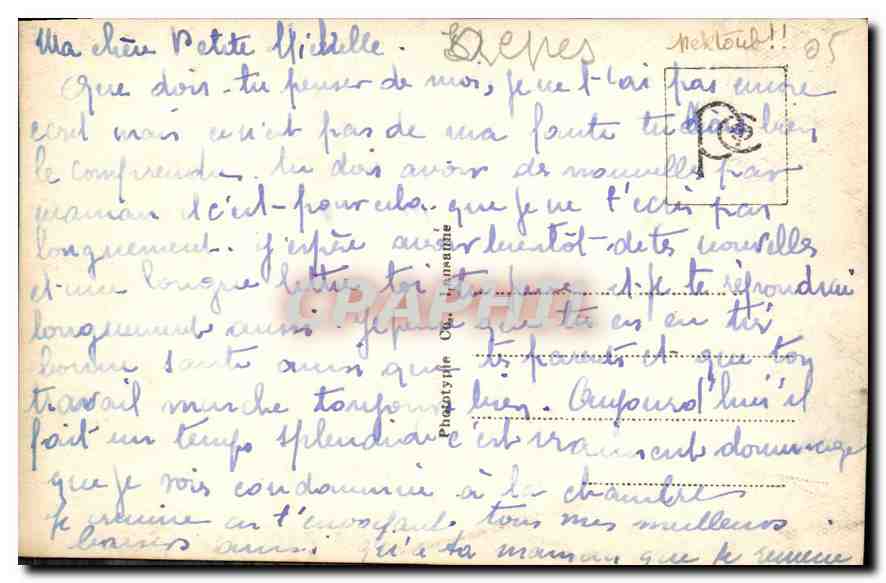 Ma chère Petite Michelle.
05
Que dois-tu penser de moi, je ne t'ai pas encore
PC
ecrit mais ce n'est pas de ma faute tu dois bien
le comprendre. tu dois avoir des nouvelles par
maman et c'est pour cela que je ne t'ecris pas
longuement. j'espère avoir bientôt de tes nouvelles
et une longue lettre toi et je te répondrai
longuement aussi. Je pense que tu es en très
bonne santé ainsi que tes parents et que ton
travail marche toujours bien. Aujourd'hui il
fait un temps splendide c'est vraiment dommage
que je sois condamnée à la chambre
Je termine en t'envoyant tous mes meilleurs
baisers ainsi qu'à ta maman, que je remercie
Phototypie Co. Lausanne
CPAPHIL